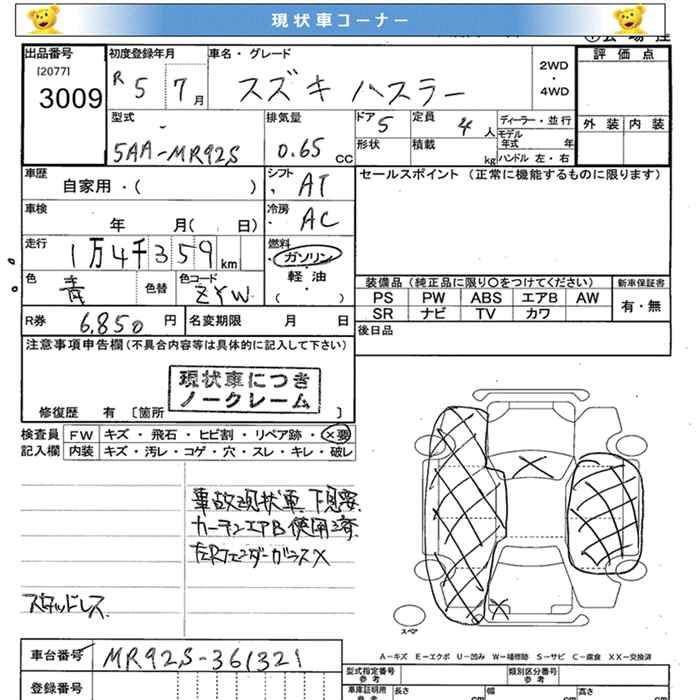 現状車コーナー
出品番号
[2077]
3009
初度登録年月
R 5 7 月
車名・グレード
スズキ ハスラー
2WD
・
4WD
評 価 点
型式
5AA-MR92S
排気量
0.65 CC
ドア 5
定員 4 人
ディーラー・並 行
モデル
年式 年
形状
積載 kg
ハンドル 左・右
外 装 内 装
車歴
自家用・( )
シフト
AT
セールスポイント (正常に機能するものに限ります)
車検
年 月( 日)
冷房
AC
走行
1万4千359 km
燃料
ガソリン
軽 油
・
( )
色
青
色替
色コード
ZYW
装備品 (純正品に限り○をつけてください)
新車保証書
PS PW ABS エアB AW
SR ナビ TV カワ
有・無
R券 6,850 円
名変期限 月 日
後日品
注意事項申告欄(不具合内容等は具体的に記入して下さい)
現状車につき
ノークレーム
修復歴 有 [箇所 ]
検査員 FW キズ・飛石・ヒビ割・リペア跡・×要
記入欄 内装 キズ・汚レ・コゲ・穴・スレ・キレ・破レ
事故現状車 下見要
カーテンエアB使用済
左Rフェンダーガラス×
スタッドレス
スペア
A-キズ E-エクボ U-凹み W-補修跡 S-サビ C-腐食 XX-交換済
車台番号 MR92S-361321
登録番号
型式指定番号
参 考
類別区分番号
参 考
車庫証明用
参 考
長さ cm
幅 cm
高さ cm